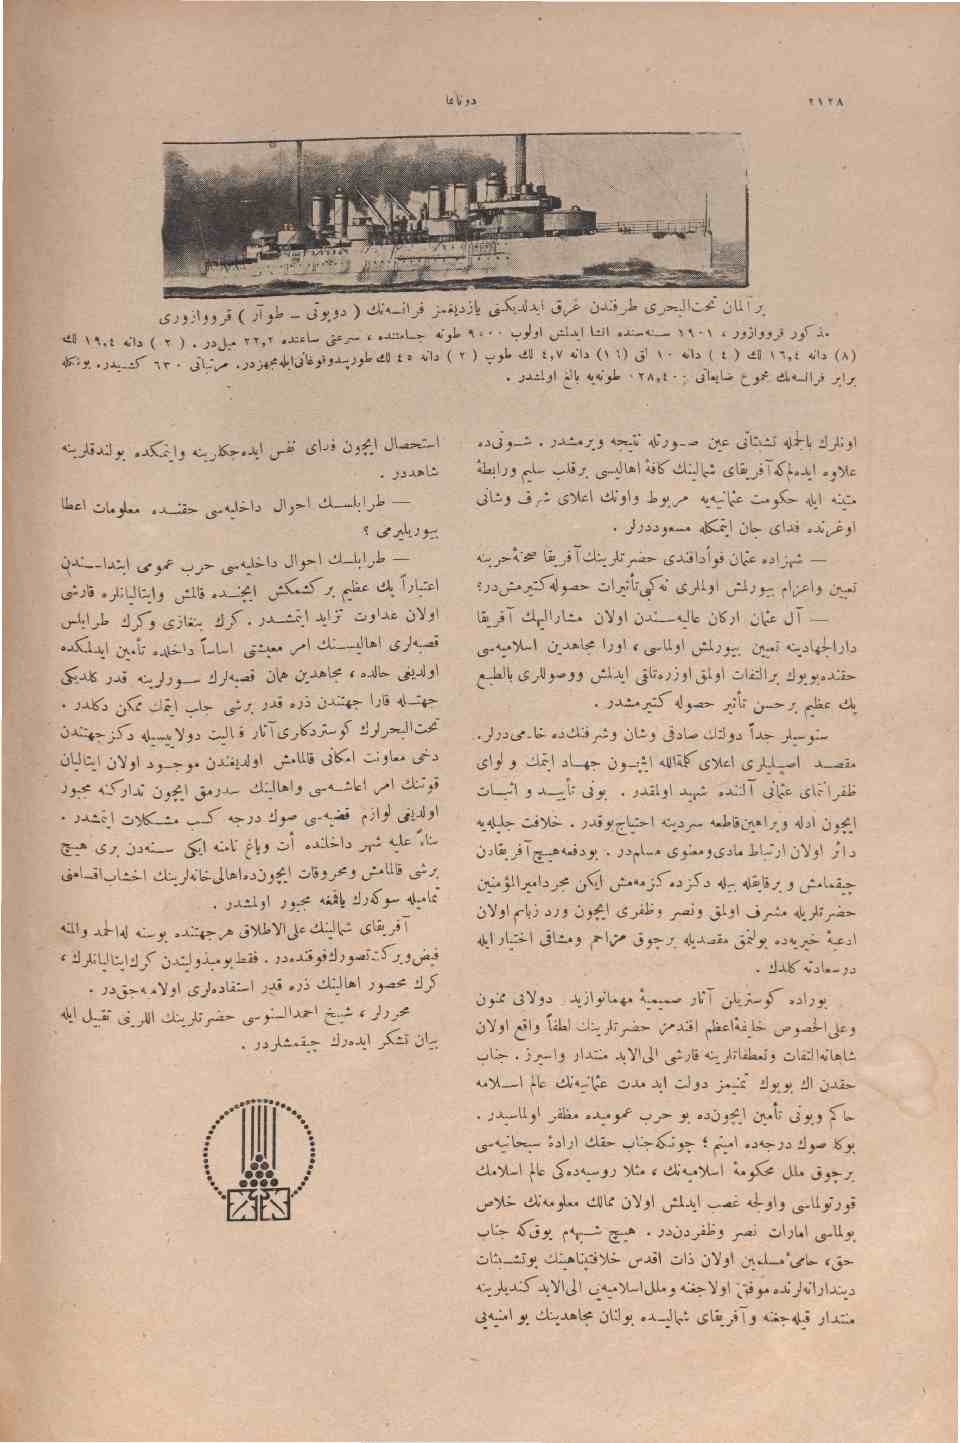 ٢١٢٨
دونانما
بر آلمان تحت‌البحری طرفندن غرق ایدلدیکنی یازدیغمز فرانسه‌نك ( دوپوتی ـ طوآر ) قرووازوری
مذکور قرووازور ، ١٩٠١ سنه‌سنده انشا ایدلمش اولوب ٩٥٠٠ طونه جسامتنده ، سرعتی ساعتده ٢٢,٢ میل‌در . ( ٢ ) دانه ١٩,٤ لك
(٨) دانه ١٦,٤ لك ( ٤ ) دانه ١٠ لق (١٦) دانه ٤,٧ لك طوپ ( ٢ ) دانه ٤٥ لك طورپیدوقوغانی‌ایله‌مجهزدر. مرتباتی ٦٣٠ کشیدر. بونکله
برابر فرانسه‌نك مجموع ضایعاتی طونه‌یه بالغ اولمشدر .
اونلرك بالجمله تشبثاتی عین صورتله نتیجه ویرمشدر . شونی‌ده
علاوه ایده‌لم‌که آفریقای شمالینك کافهٔ اهالیسی برقلب سلیم ورابطهٔ
متینه ایله حکومت عثمانیه‌یه مربوط واونك اعلای شرف وشانی
اوغرنده فدای جان ایتمکله مسعوددرلر .
— شهزاده عثمان فوأدافندی حضرتلرینك آفریقا صحنهٔ حربنه
تعیین واعزام بیورلمش اولملری نه‌کبی‌تأثیرات حصوله‌کتیرمش‌در؟
— آل عثمان ارکان عالیه‌سندن اولان مشارالیهك آفریقا
دارالجهادینه تعیین بیورلمش اولماسی ، اورا مجاهدین اسلامیه‌سی
حقنده‌بویوك برالتفات اولمق اوزره‌تلقی ایدلمش ووصوللری بالطبع
پك عظیم برحسن تأثیر حصوله کتیرمشدر .
سنوسیلر جداً دولتك صادق وشان وشرفنك‌ده خادمی‌درلر.
مقصد اصلیلری اعلای کلمةالله ایچون جهاد ایتمك و لوای
ظفرانتمای عثمانی آلتنده شهید اولمقدر . بونی تأیید و اثبات
ایچون ادله وبراهین‌قاطعه سردینه احتیاج‌یوقدر . خلافت جلیله‌یه
دائر اولان ارتباط مادی‌ومعنوی مسلم‌در . بودفعه‌هیچ‌آفریقادن
چیقمامش و برقایقله بیله دکزده‌کزمه‌مش ایکن مجردامیرالمؤمنین
حضرتلریله مشرف اولمق ونصر وظفری ایچون ورد زبانم اولان
ادعیهٔ خیریه‌ده بولنمق مقصدیله برچوق مزاحم ومشاقی اختیار ایله
درسعادته کلدك .
بوراده کوستریلن آثار صمیمیهٔ مهمانوازیدن دولایی ممنون
وعلی‌الخصوص خلیفهٔ‌اعظم افندمز حضرتلرینك لطفاً واقع اولان
شاهانه‌التفات وتعطفاتلرینه قارشی الی‌الابد منتدار واسیرز . جناب
حقدن اك بویوك تمنیمز دولت ابد مدت عثمانیه‌نك عالم اسلامه
حاکم وبونی تأمین ایچون‌ده بو حرب عمومیده مظفر اولماسیدر .
بوکا صوك درجه‌ده امینم ؛ چونکه‌جناب حقك ارادهٔ سبحانیه‌سی
برچوق ملل محکومهٔ اسلامیه‌نك ، مثلا روسیه‌ده‌کی عالم اسلامك
قورتولماسی واولجه غصب ایدلمش اولان ممالك معلومه‌نك خلاص
بولماسی امارات نصر وظفردن‌در . هیچ شبهه‌م یوق‌که جناب
حق، حامیٔ مسلمین اولان ذات اقدس خلافتپناهینك بوتشبثات
دیندارانه‌لرنده موفق اولاجغنه وملل‌اسلامیه‌یی الی‌الابد کندیلرینه
منتدار قیله‌جغنه وآفریقای شمالیده بولنان مجاهدینك بو امنیه‌یی
استحصال ایچون فدای نفس ایده‌جکلرینه وایتمکده بولندقلرینه
شاهددر .
— طرابلسك احوال داخلیه‌سی حقنده معلومات اعطا
بیوریلیرمی ؟
— طرابلسك احوال داخلیه‌سی حرب عمومی ابتداسندن
اعتباراً پك عظیم بر کشمکش ایچنده قالمش وایتالیانلره قارشی
اولان عداوت تزاید ایتمشدر . کرك بنغازی وکرك طرابلس
قصبه‌لری اهالیسنك امر معیشتی اساساً داخلده تأمین ایدلمکده
اولدیغی حالده ، مجاهدین همان قصبه‌لرك سورلرینه قدر کلدیکی
جهتله قارا جهتندن ذره قدر برشی جلب ایتمك ممکن دکلدر .
تحت‌البحرلرك کوستردکلری آثار فعالیت دولاییسیله دکزجهتندن
دخی معاونت امکانی قالمامش اولدیغندن موجود اولان ایتالیان
قوتنك امر اعاشه‌سی واهالینك سدرمق ایچون تدارکنه مجبور
اولدیغی لوازم قضیه‌سی صوك درجه کسب مشکلات ایتمشدر .
بناءً علیه شهر داخلنده أت ویاغ نامنه ایکی سنه‌دن بری هیچ
برشی قالمامش ومحروقات ایچون‌ده‌اهالی‌خانه‌لرینك اخشاب‌اقسامنی
تمامیله سوکه‌رك یاقمغه مجبور اولمشدر .
آفریقای شمالینك علی‌الاطلاق هرجهتنده بوسنه له‌الحمد والمنه
فیض‌وبرکت‌تصورك‌فوقنده‌در . فقط‌بومبذولیتدن کرك‌ایتالیانلرك ،
کرك محصور اهالینك ذره قدر استفاده‌لری اولامه‌جق‌در .
محررلر ، شیخ احمدالسنوسی حضرتلرینك اللرینی تقبیل ایله
بیان تشکر ایده‌رك چیقمشلردر .